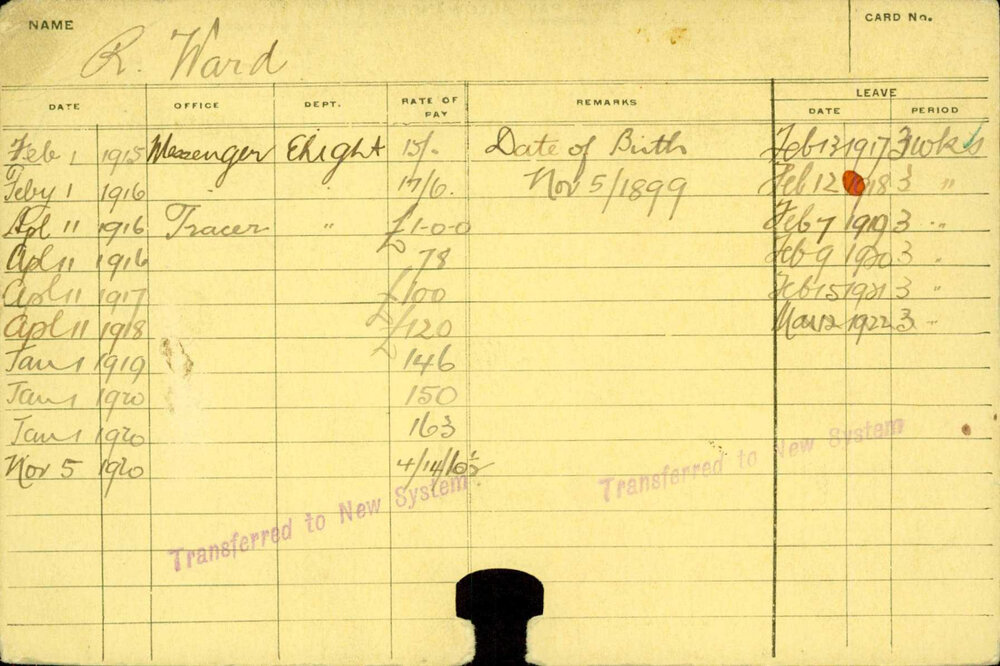 NAME
CARD No.
R. Ward
DATE OFFICE DEPT. RATE OF PAY REMARKS LEAVE
DATE PERIOD
Feb 1 1915 Messenger 15/- Date of Birth Feb 13 1917 3 wks
Feby 1 1916 " 17/6. Nov 5/1899 Feb 12 1918 3 "
Apl 11 1916 Tracer " £1-0-0 Feb 7 1919 3 "
Apl 11 1916 £78 Feb 9 1920 3 "
Apl 11 1917 £100 Feb 15 1921 3 "
Apl 11 1918 £120 Mar 12 1922 3 "
Jan 1 1919 146
Jan 1 1920 150
Jan 1 1920 163
Nov 5 1920
Transferred to New System
Transferred to New System